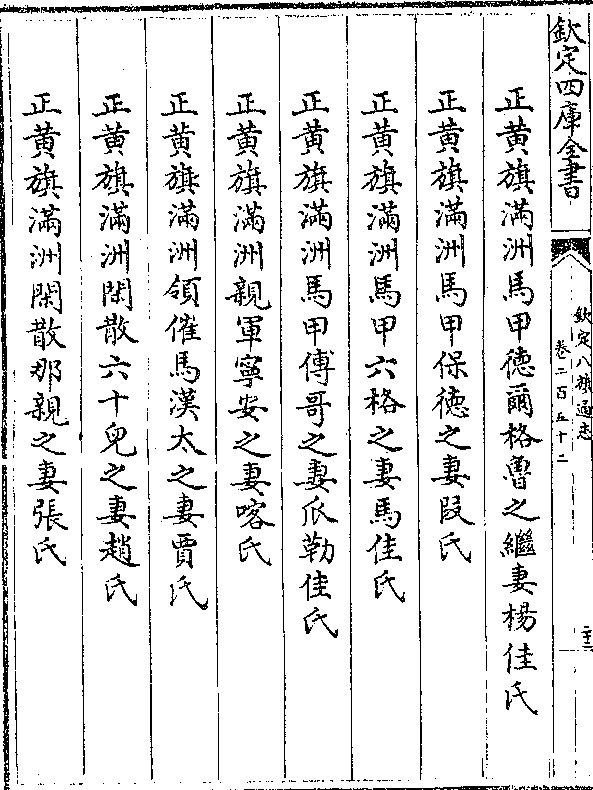 欽定四庫全書
欽定八旗通志
卷二百五十二
正黄旗滿洲馬甲德爾格魯之繼妻楊佳氏
正黄旗滿洲馬甲保德之妻段氏
正黄旗滿洲馬甲六格之妻馬佳氏
正黄旗滿洲馬甲傅哥之妻瓜勒佳氏
正黄旗滿洲親軍寧安之妻喀氏
正黄旗滿洲領催馬漢太之妻賈氏
正黄旗滿洲閑散六十兒之妻趙氏
正黄旗滿洲閑散那親之妻張氏